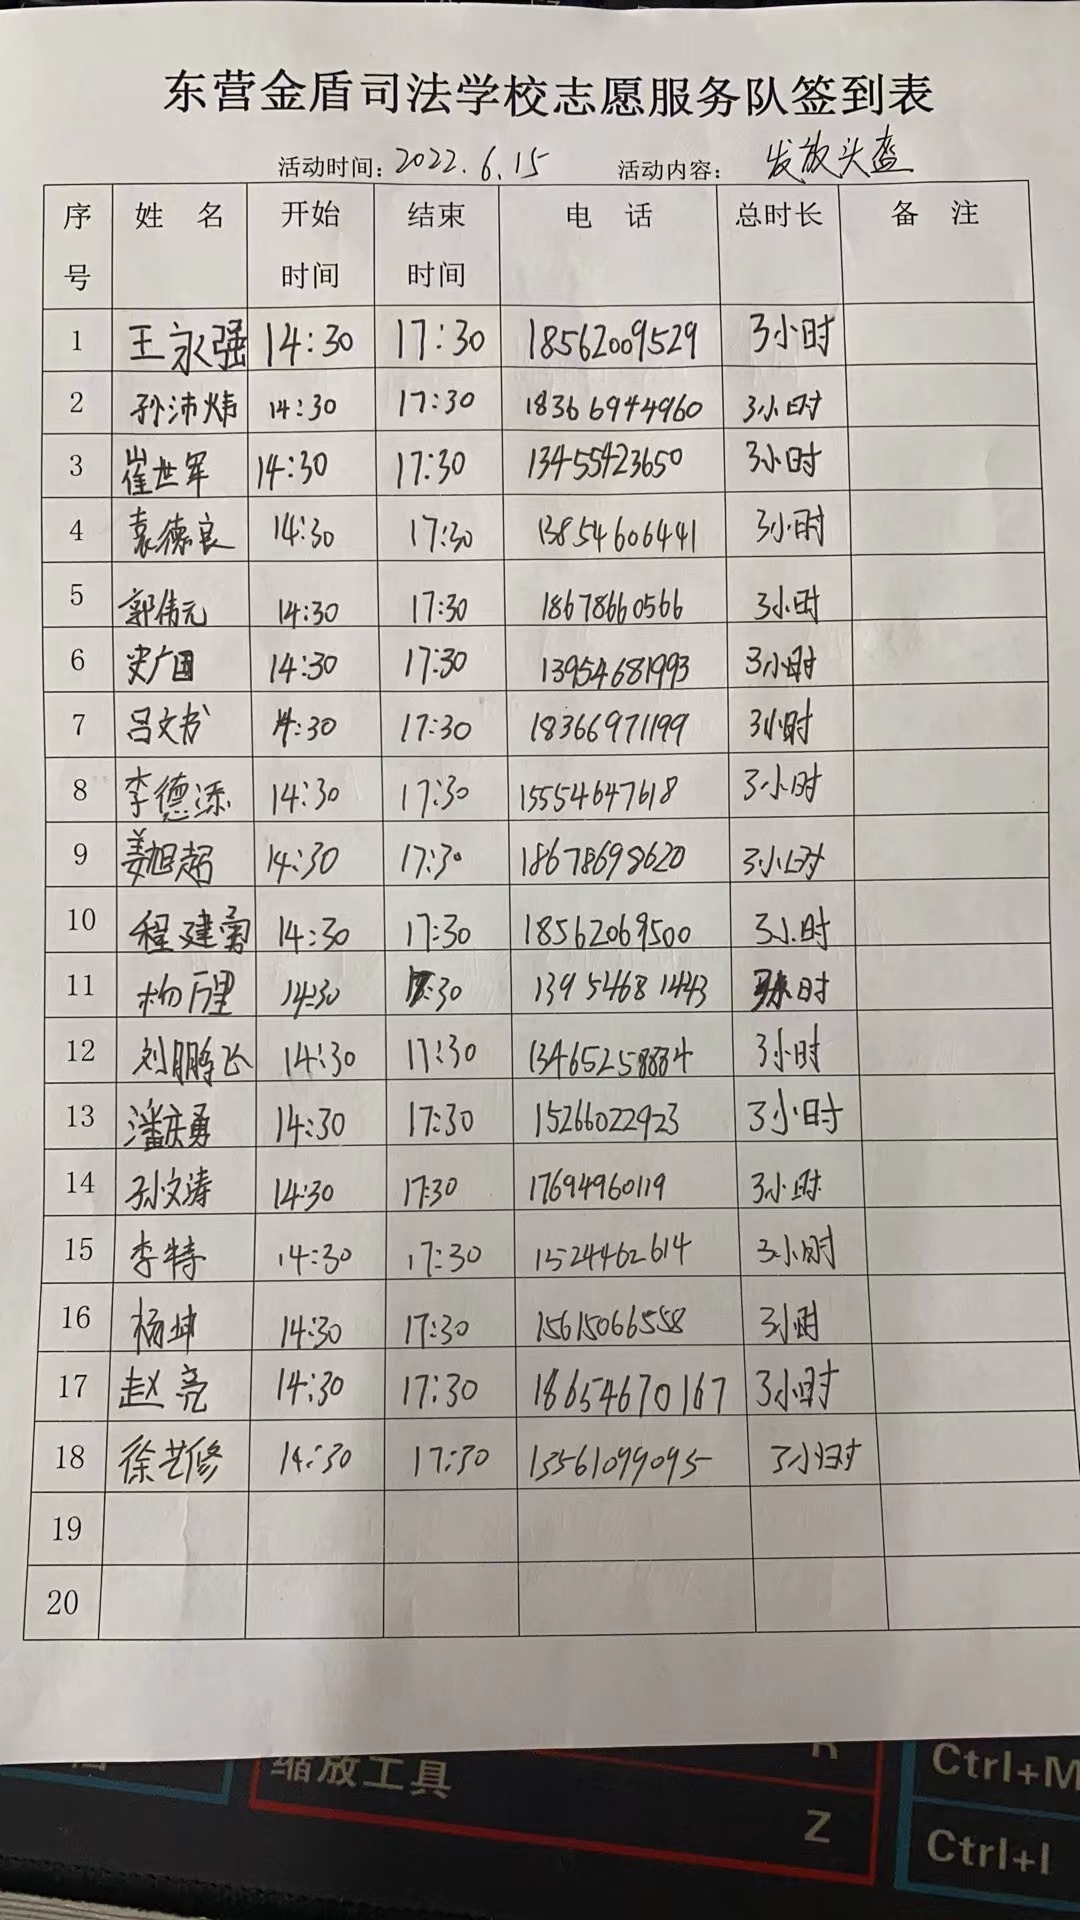 东营金盾司法学校志愿服务队签到表
活动时间：2022.6.15 活动内容：发放头盔
序号 姓 名 开始时间 结束时间 电 话 总时长 备 注
1 王永强 14:30 17:30 18562009529 3小时
2 孙沛炜 14:30 17:30 18366944960 3小时
3 崔世军 14:30 17:30 13455423650 3小时
4 袁德良 14:30 17:30 13854606441 3小时
5 郭伟元 14:30 17:30 18678660566 3小时
6 史广国 14:30 17:30 13954681993 3小时
7 吕文书 14:30 17:30 18366971199 3小时
8 李德添 14:30 17:30 15554647618 3小时
9 姜旭超 14:30 17:30 18678698620 3小时
10 程建勇 14:30 17:30 18562069500 3小时
11 杨万里 14:30 17:30 13954681443 3小时
12 刘鹏飞 14:30 17:30 13465258884 3小时
13 潘庆勇 14:30 17:30 15266022923 3小时
14 孙文涛 14:30 17:30 17694960119 3小时
15 李特 14:30 17:30 1524462614 3小时
16 杨坤 14:30 17:30 15615066558 3小时
17 赵亮 14:30 17:30 18654670167 3小时
18 徐艺修 14:30 17:30 13561099095 3小时
19
20
缩放工具
Z
Ctrl+M
Ctrl+I